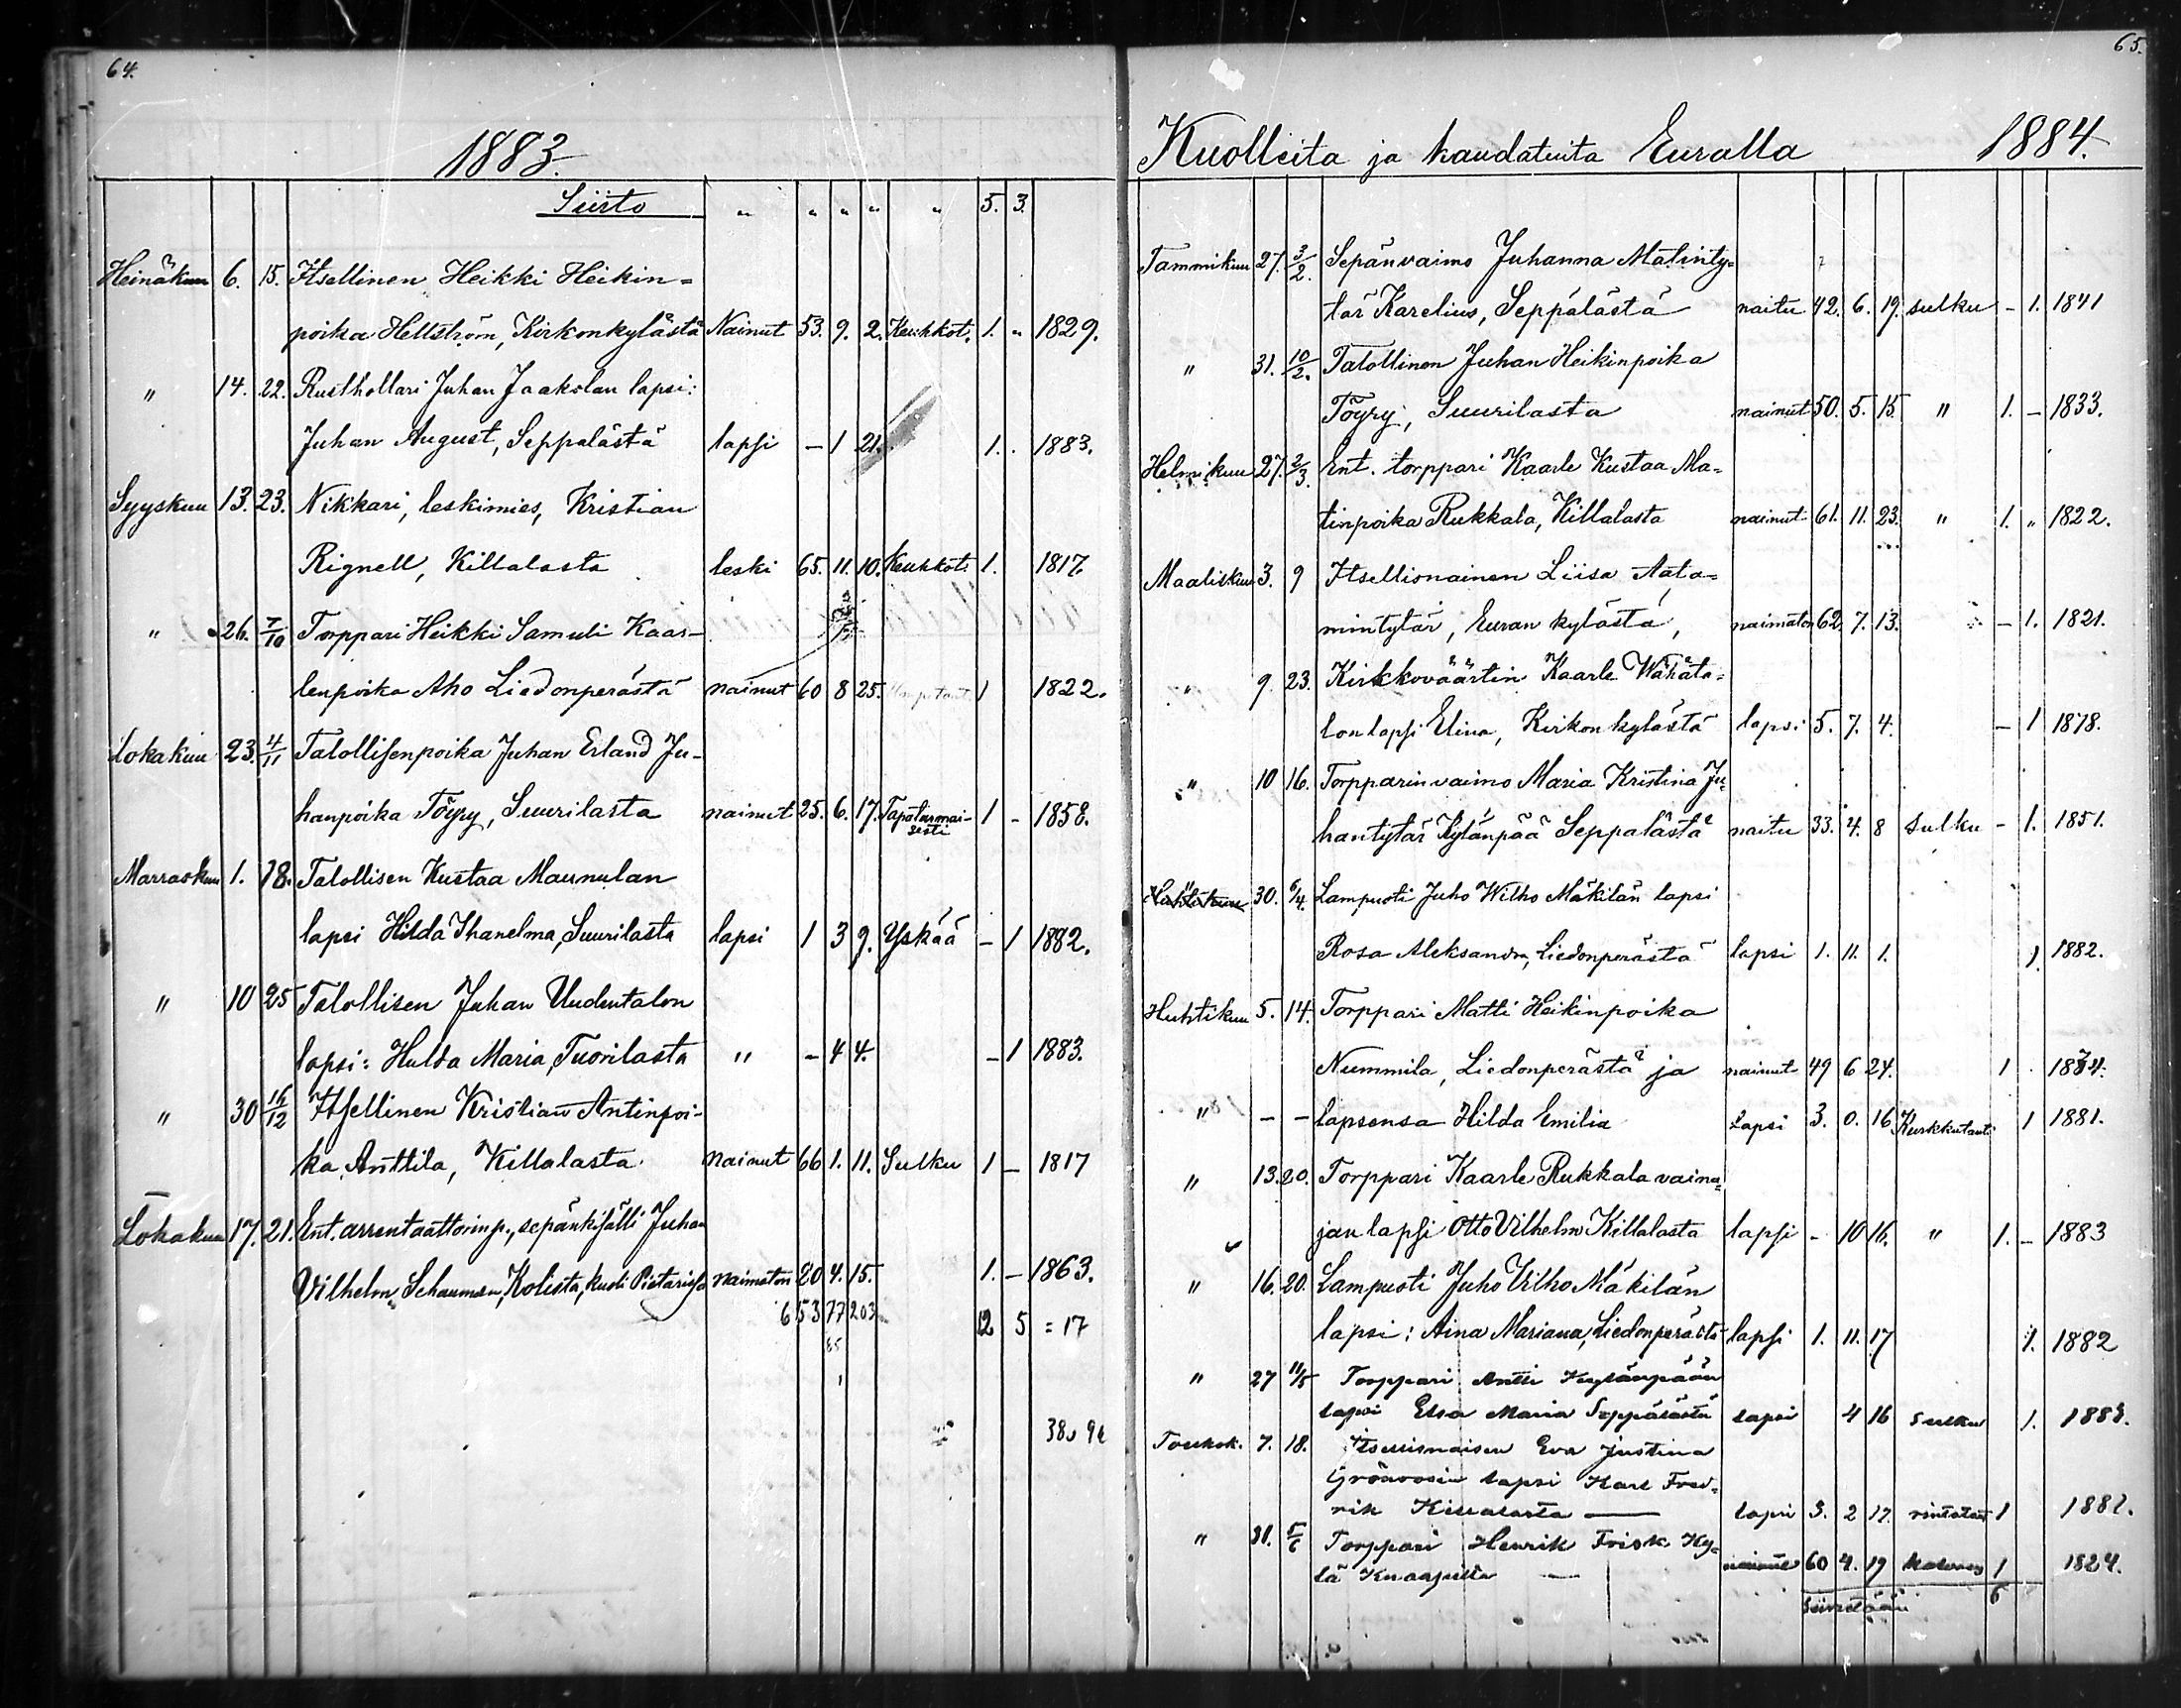 64.
1883.
Siirto " " " " " 5. 3.
Heinäkuu 6. 15. Itsellinen Heikki Heikin-
poika Hellström, Kirkonkylästä Nainut 53. 9. 2. Keuhkot. 1. " 1829.
" 14. 22. Rusthollari Juhan Jaakolan lapsi:
Juhan August, Seppälästä lapsi - 1 21. 1. . 1883.
Syyskuu 13. 23. Nikkari, leskimies, Kristian
Rignell, Killalasta leski 65. 11. 10. Keuhkot. 1. 1817.
" 26. 7/10 Torppari Heikki Samuli Kaar-
lenpoika Aho Liedonperästä nainut 60 8 25. 1 1822.
Lokakuu 23. 4/11 Talollisenpoika Juhan Erland Ju-
hanpoika Töyry, Suurilasta nainut 25. 6. 17. Tapaturmai- 1 - 1858.
sesti
Marraskuu 1. 18. Talollisen Kustaa Maunulan
lapsi Hilda Ihanelma, Suurilasta lapsi 1 3 9. Yskää - 1 1882.
" 10 25 Talollisen Juhan Uudentalon
lapsi: Hulda Maria, Tuorilasta " - 4 4. - 1 1883.
" 30 16/12 Itsellinen Kristian Antinpoi-
ka Anttila, Killalasta Nainut 66 1. 11. Sulku 1 - 1817
Lokakuu 17. 21. Ent. arrentaattorin p., sepänkisälli Juhan
Vilhelm Schauman, Kolista, kuoli Pietarissa naimaton 20 4. 15. 1. - 1863.
653 77 203 12 5 = 17
65.
Kuolleita ja haudatuita Euralla 1884.
Tammikuu 27. 3/2. Sepänvaimo Juhanna Matinty-
tär Karelius, Seppälästä naitu 42. 6. 19. sulku - 1. 1841
" 31. 10/2. Talollinen Juhan Heikinpoika
Töyry, Suurilasta nainut 50. 5. 15. " 1. - 1833.
Helmikuu 27. 2/3. Ent. torppari Kaarle Kustaa Ma-
tinpoika Rukkala, Killalasta nainut 61. 11. 23. " 1. " 1822.
Maaliskuu 3. 9 Itsellisnainen Liisa Aata-
mintytär, Euran kylästä, naimaton 62. 7. 13. - 1. 1821.
" 9. 23. Kirkkoväärtin Kaarle Wähäta-
lon lapsi Elina, Kirkonkylästä lapsi 5. 7. 4. - 1 1878.
" 10 16. Torpparinvaimo Maria Kristina Ju-
hantytär Kylänpää Seppälästä naitu 33. 4. 8 Sulku - 1. 1851.
Huhtikuu 30. 6/4. Lampuoti Juho Wilho Mäkilän lapsi
Rosa Aleksandra, Liedonperästä lapsi 1. 11. 1. 1. 1882.
Huhtikuu 5. 14. Torppari Matti Heikinpoika
Nummila, Liedonperästä ja nainut 49 6 24. 1 .
" - - lapsensa Hilda Emilia lapsi 3. 0. 16 Kurkkutauti 1 1881.
" 13. 20. Torppari Kaarle Rukkala vaina-
jan lapsi Otto Vilhelm Killalasta lapsi - 10 16. " 1. - 1883
" 16. 20. Lampuoti Juho Vilho Mäkilän
lapsi: Aina Mariana, Liedonperästä lapsi 1. 11. 17 1. 1882
" 27 11/5 Torppari Antti Kylänpään
lapsi Elsa Maria Seppälästä lapsi 4 16 sulku 1. 1883.
Toukok. 7. 18. Itsellisnaisen Eva Justina
Grönroosin lapsi Karl Fred-
rik Killalasta lapsi 3. 2 17. rintataut 1
" 31. 5/6 Torppari Henrik Frisk Ky-
lä Knaapilta nainut 60 4. 19 1 1824.
Siirretään 6